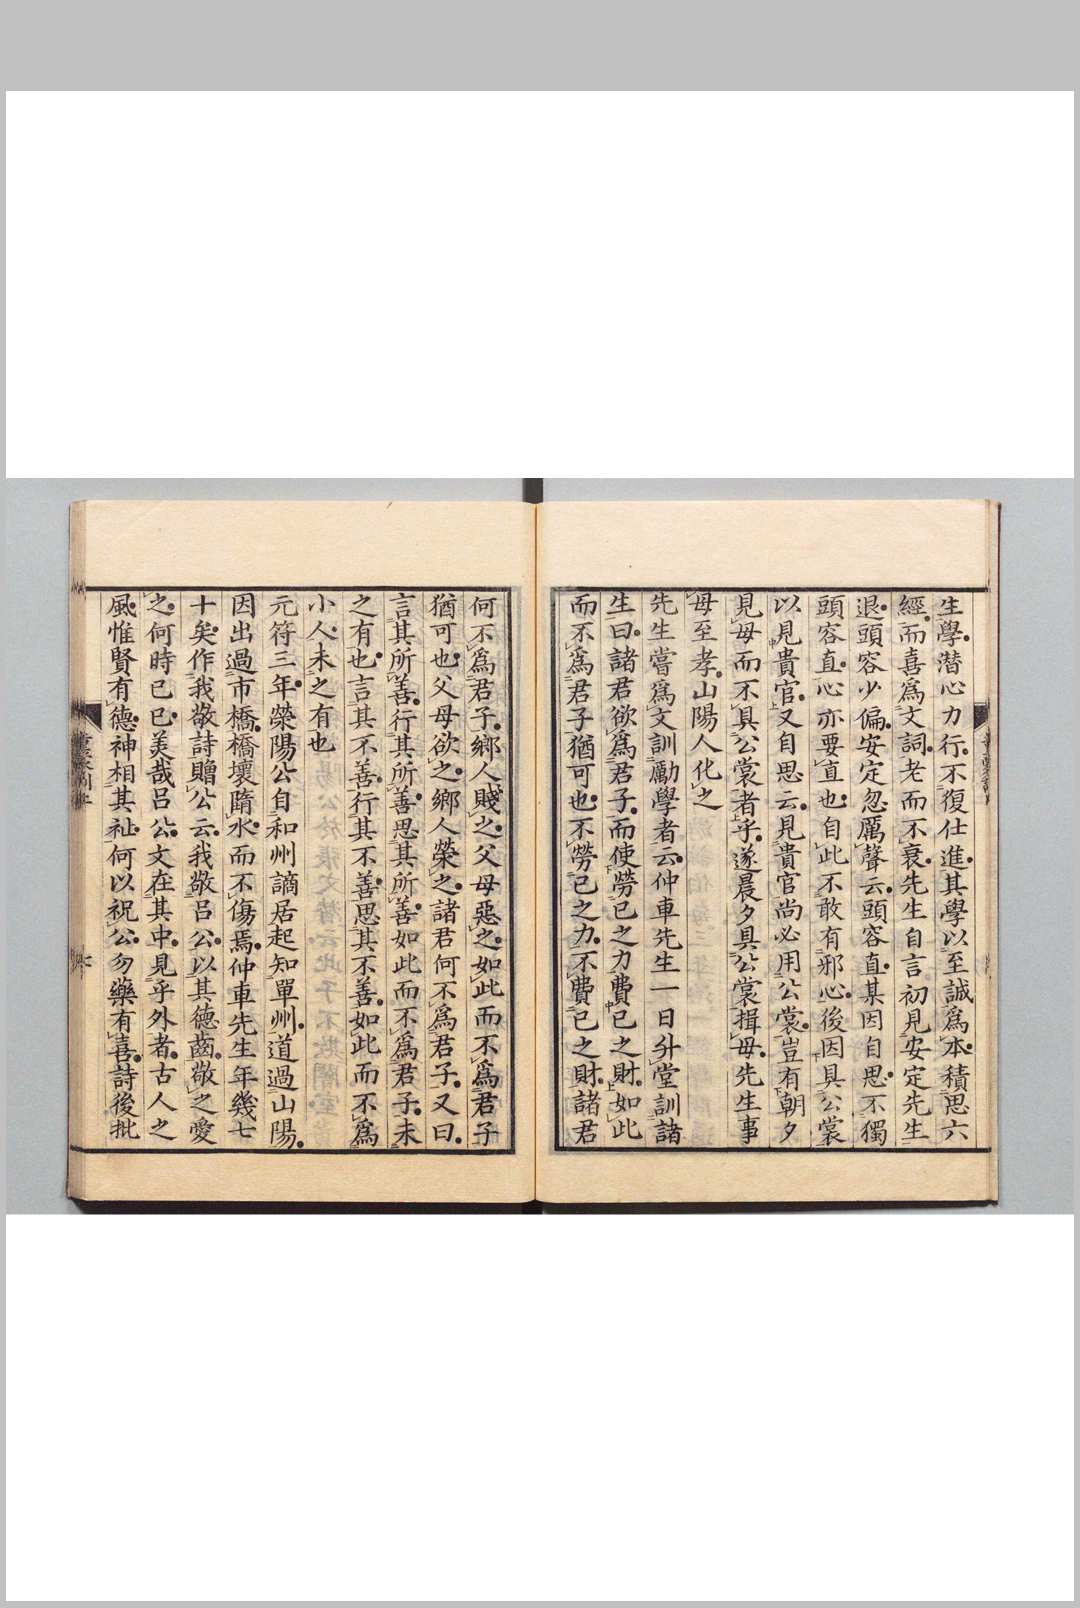 生學潜心力行不復仕進其學以至誠爲本積思六
經而喜爲文詞老而不衰先生自言初見安定先生
退頭容少偏安定忽厲聲云頭容直某因自思不獨
頭容直心亦要直也自此不敢有邪心後因具公裳
以見貴官又自思云見貴官尚必用公裳豈有朝夕
見母而不具公裳者乎遂晨夕具公裳揖母先生事
母至孝山陽人化之
先生嘗爲文訓勵學者云仲車先生一日升堂訓諸
生曰諸君欲爲君子而使勞己之力費己之財如此
而不爲君子猶可也不勞己之力不費己之財諸君
何不爲君子鄉人賤之父母惡之如此而不爲君子
猶可也父母欲之鄉人榮之諸君何不爲君子又曰
言其所善行其所善思其所善如此而不爲君子未
之有也言其不善行其不善思其不善如此而不爲
小人未之有也
元符三年榮陽公自和州謫居起知單州道過山陽
因出過市橋橋壞隋水而不傷焉仲車先生年幾七
十矣作我敬詩贈公云我敬呂公以其德齒敬之愛
之何時已已美哉呂公文在其中見乎外者古人之
風惟賢有德神相其祉何以祝公勿藥有喜詩後批